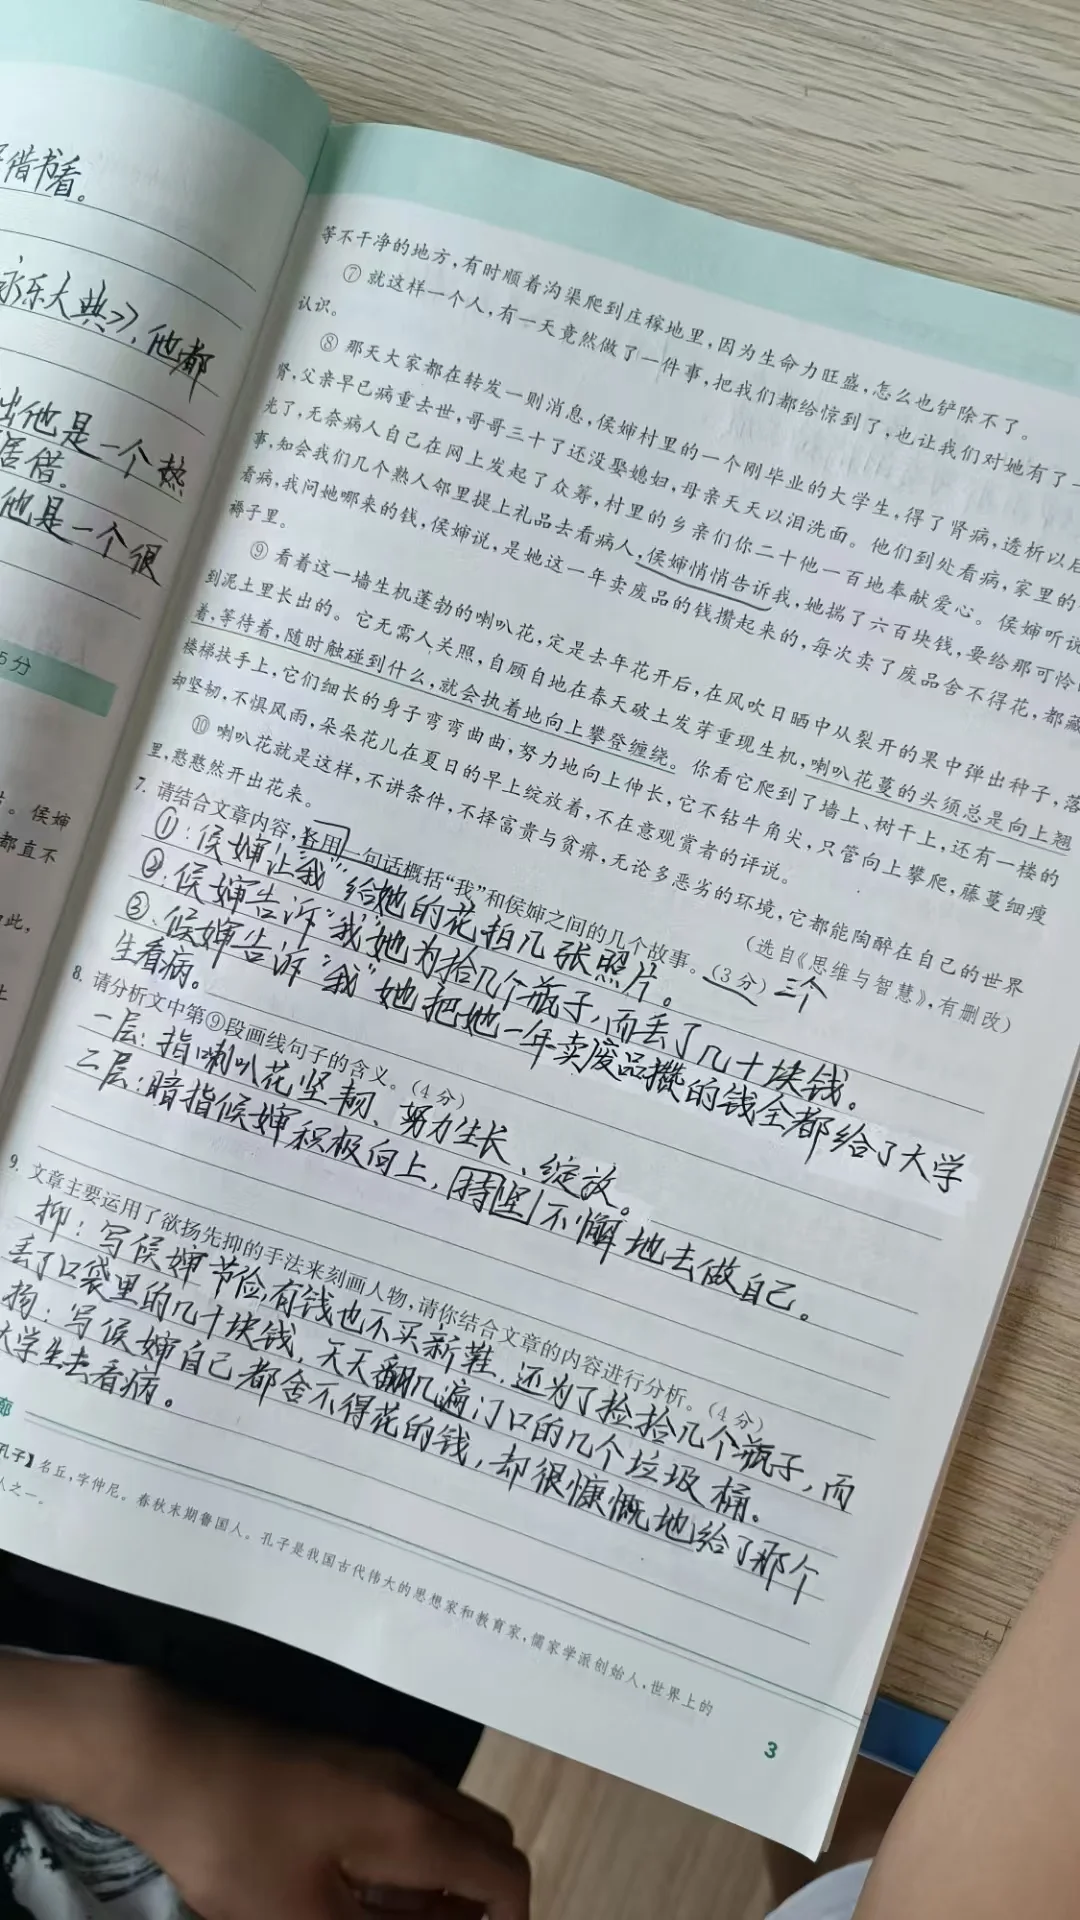 等借书看。
永乐大典》,他都
出他是一个热
居借。
他是一个很
5分
。侯婶
都直不
如此,
等不干净的地方,有时顺着沟渠爬到庄稼地里,因为生命力旺盛,怎么也铲除不了。
⑦ 就这样一个人,有一天竟然做了一件事,把我们都给惊到了,也让我们对她有了一
认识。
⑧ 那天大家都在转发一则消息,侯婶村里的一个刚毕业的大学生,得了肾病,透析以后
肾,父亲早已病重去世,哥哥三十了还没娶媳妇,母亲天天以泪洗面。他们到处看病,家里的
光了,无奈病人自己在网上发起了众筹,村里的乡亲们你二十他一百地奉献爱心。侯婶听说
事,知会我们几个熟人邻里提上礼品去看病人,侯婶悄悄告诉我,她揣了六百块钱,要给那可怜
看病,我问她哪来的钱,侯婶说,是她这一年卖废品的钱攒起来的,每次卖了废品舍不得花,都藏
褥子里。
⑨ 看着这一墙生机蓬勃的喇叭花,定是去年花开后,在风吹日晒中从裂开的果中弹出种子,落
到泥土里长出的。它无需人关照,自顾自地在春天破土发芽重现生机,喇叭花蔓的头须总是向上翘
着,等待着,随时触碰到什么,就会执着地向上攀登缠绕。你看它爬到了墙上、树干上,还有一楼的
楼梯扶手上,它们细长的身子弯弯曲曲,努力地向上伸长,它不钻牛角尖,只管向上攀爬,藤蔓细瘦
却坚韧,不惧风雨,朵朵花儿在夏日的早上绽放着,不在意观赏者的评说。
⑩ 喇叭花就是这样,不讲条件,不择富贵与贫瘠,无论多恶劣的环境,它都能陶醉在自己的世界
里,憨憨然开出花来。
(选自《思维与智慧》,有删改)
7. 请结合文章内容,各用一句话概括“我”和侯婶之间的几个故事。(3分) 三个
①:侯婶让“我”给她的花拍几张照片。
②:侯婶告诉“我”她为拾几个瓶子,而丢了几十块钱。
③:侯婶告诉“我”她把她一年卖废品攒的钱全都给了大学
生看病。
8. 请分析文中第⑨段画线句子的含义。(4分)
一层:指喇叭花坚韧、努力生长、绽放。
二层:暗指侯婶积极向上,持坚不懈地去做自己。
9. 文章主要运用了欲扬先抑的手法来刻画人物,请你结合文章的内容进行分析。(4分)
抑:写侯婶节俭,有钱也不买新鞋,还为了捡拾几个瓶子,而
丢了口袋里的几十块钱,天天翻几遍门口的几个垃圾桶。
扬:写侯婶自己都舍不得花的钱,却很慷慨地给了那个
大学生去看病。
廊
孔子】名丘,字仲尼。春秋末期鲁国人。孔子是我国古代伟大的思想家和教育家,儒家学派创始人,世界上的
人之一。
3